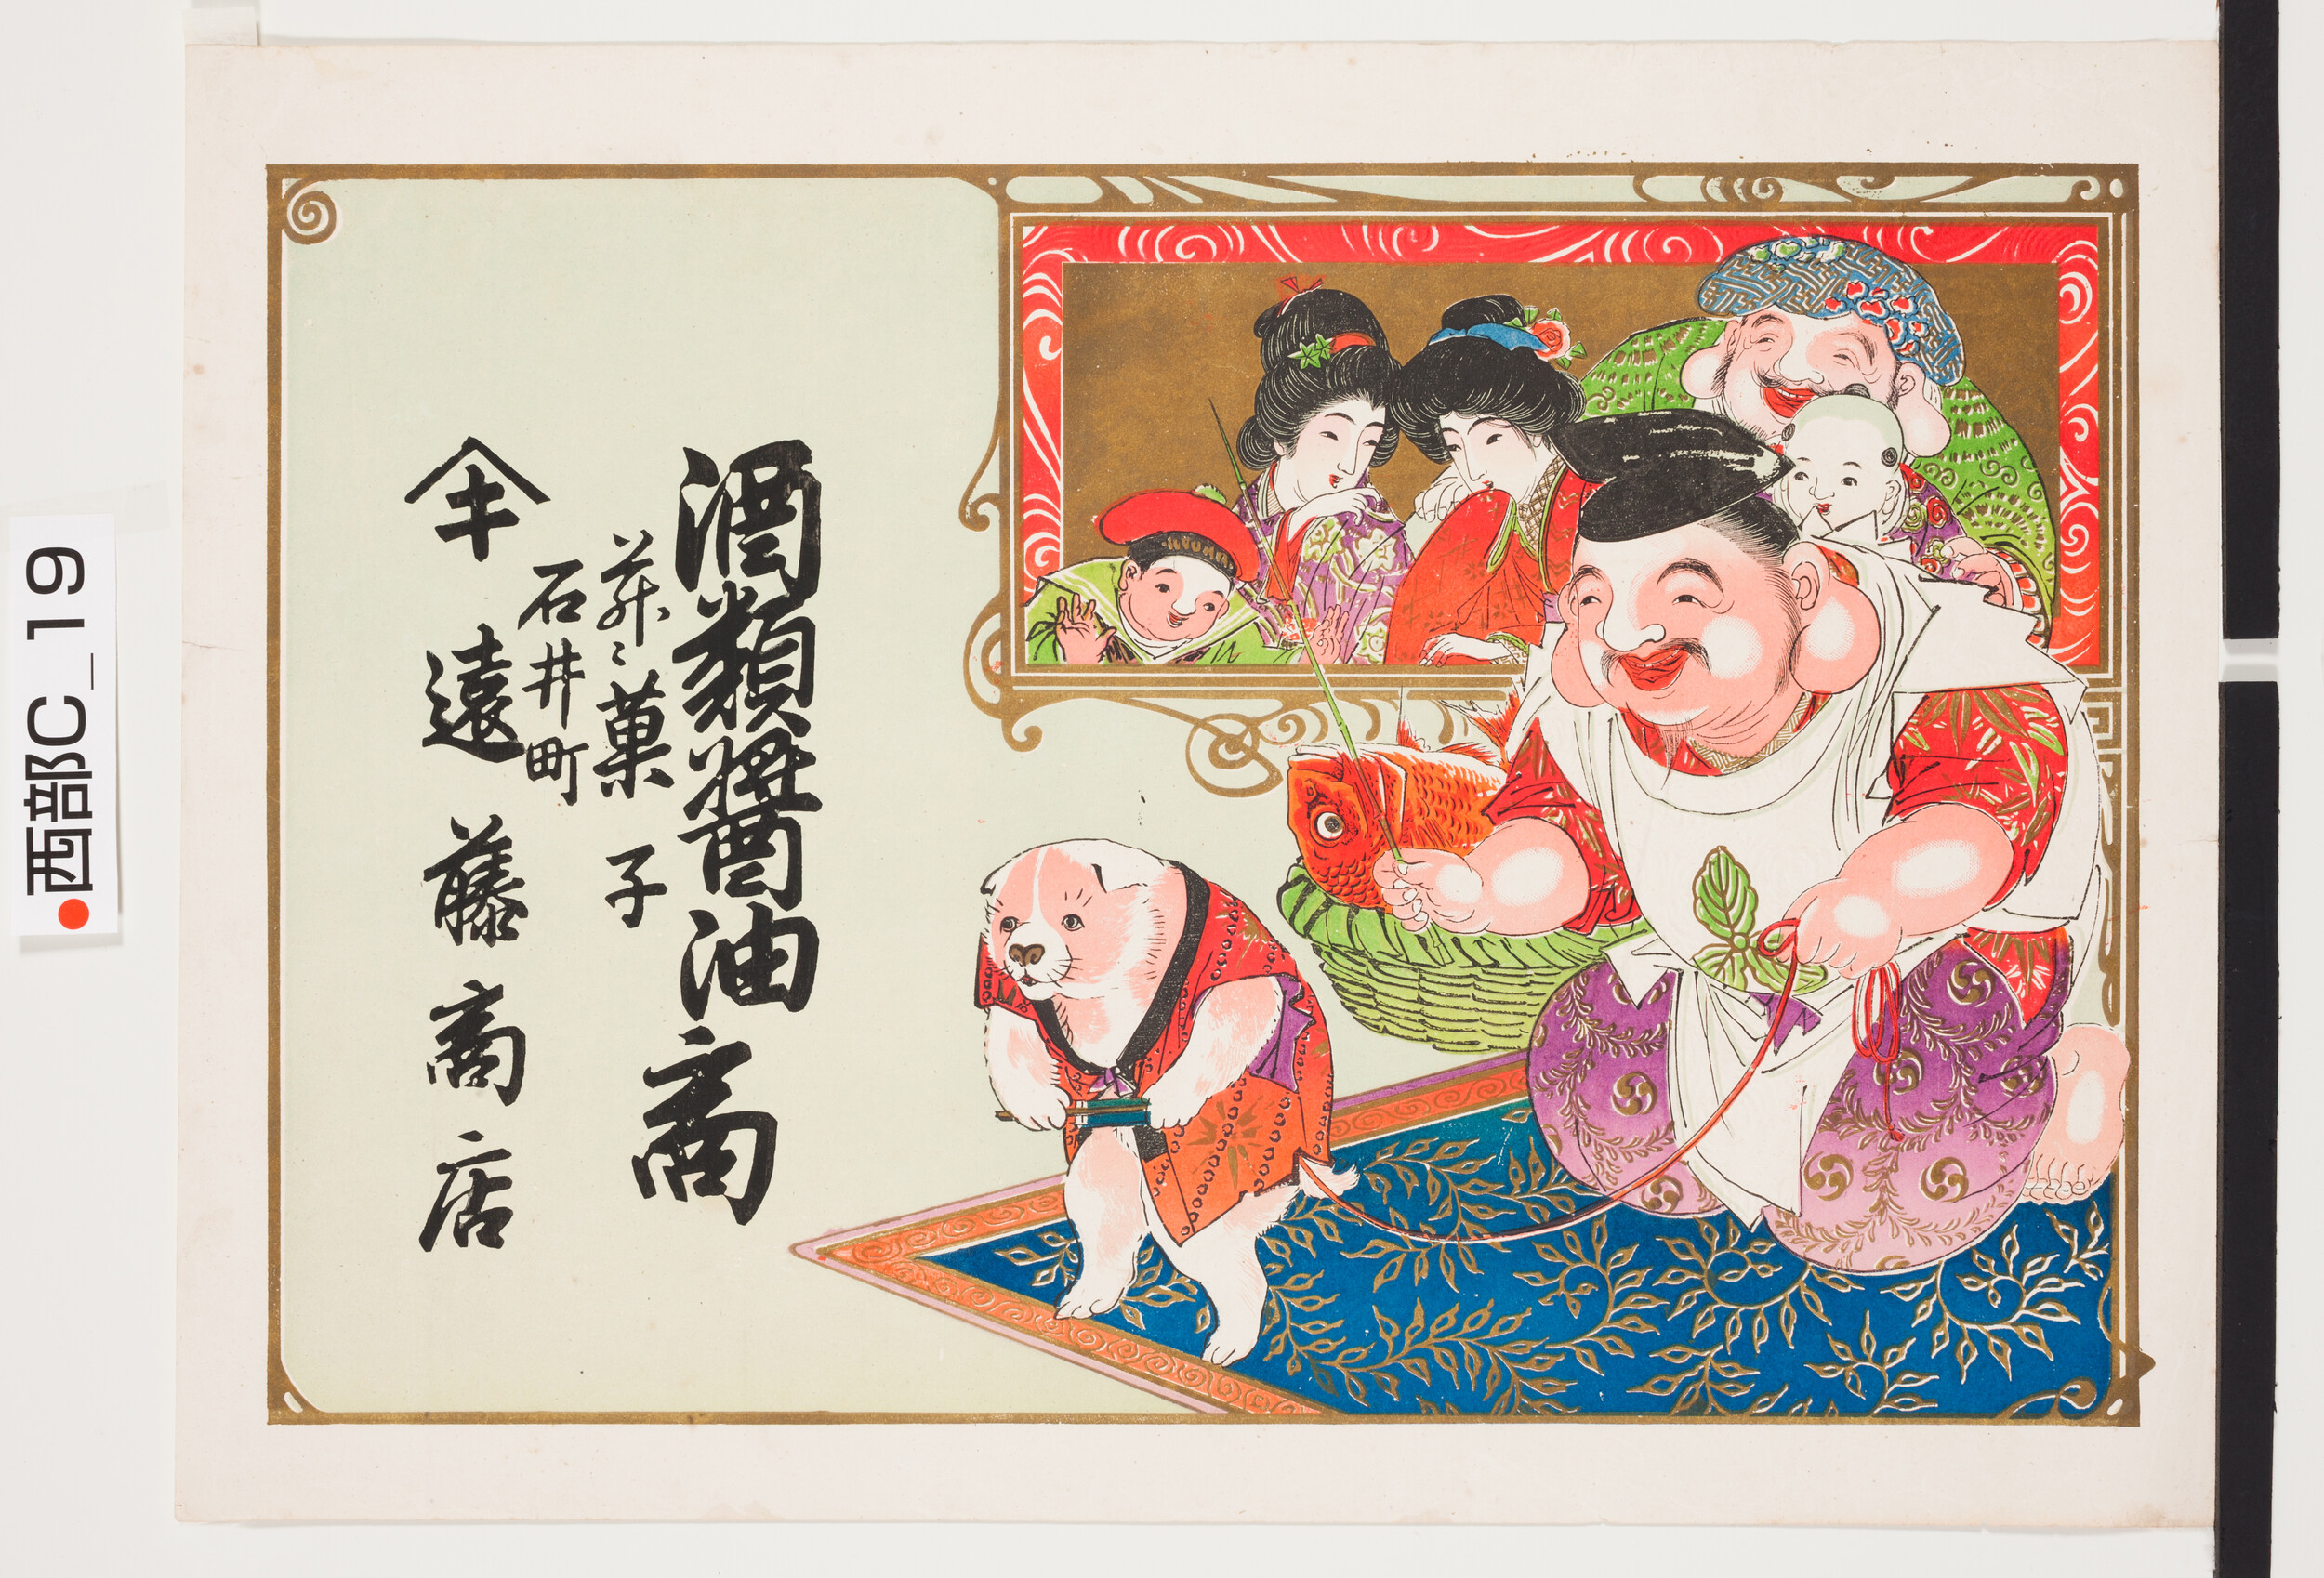 酒類醬油商
菓子
石井町
キ 遠藤商店
西部C_19